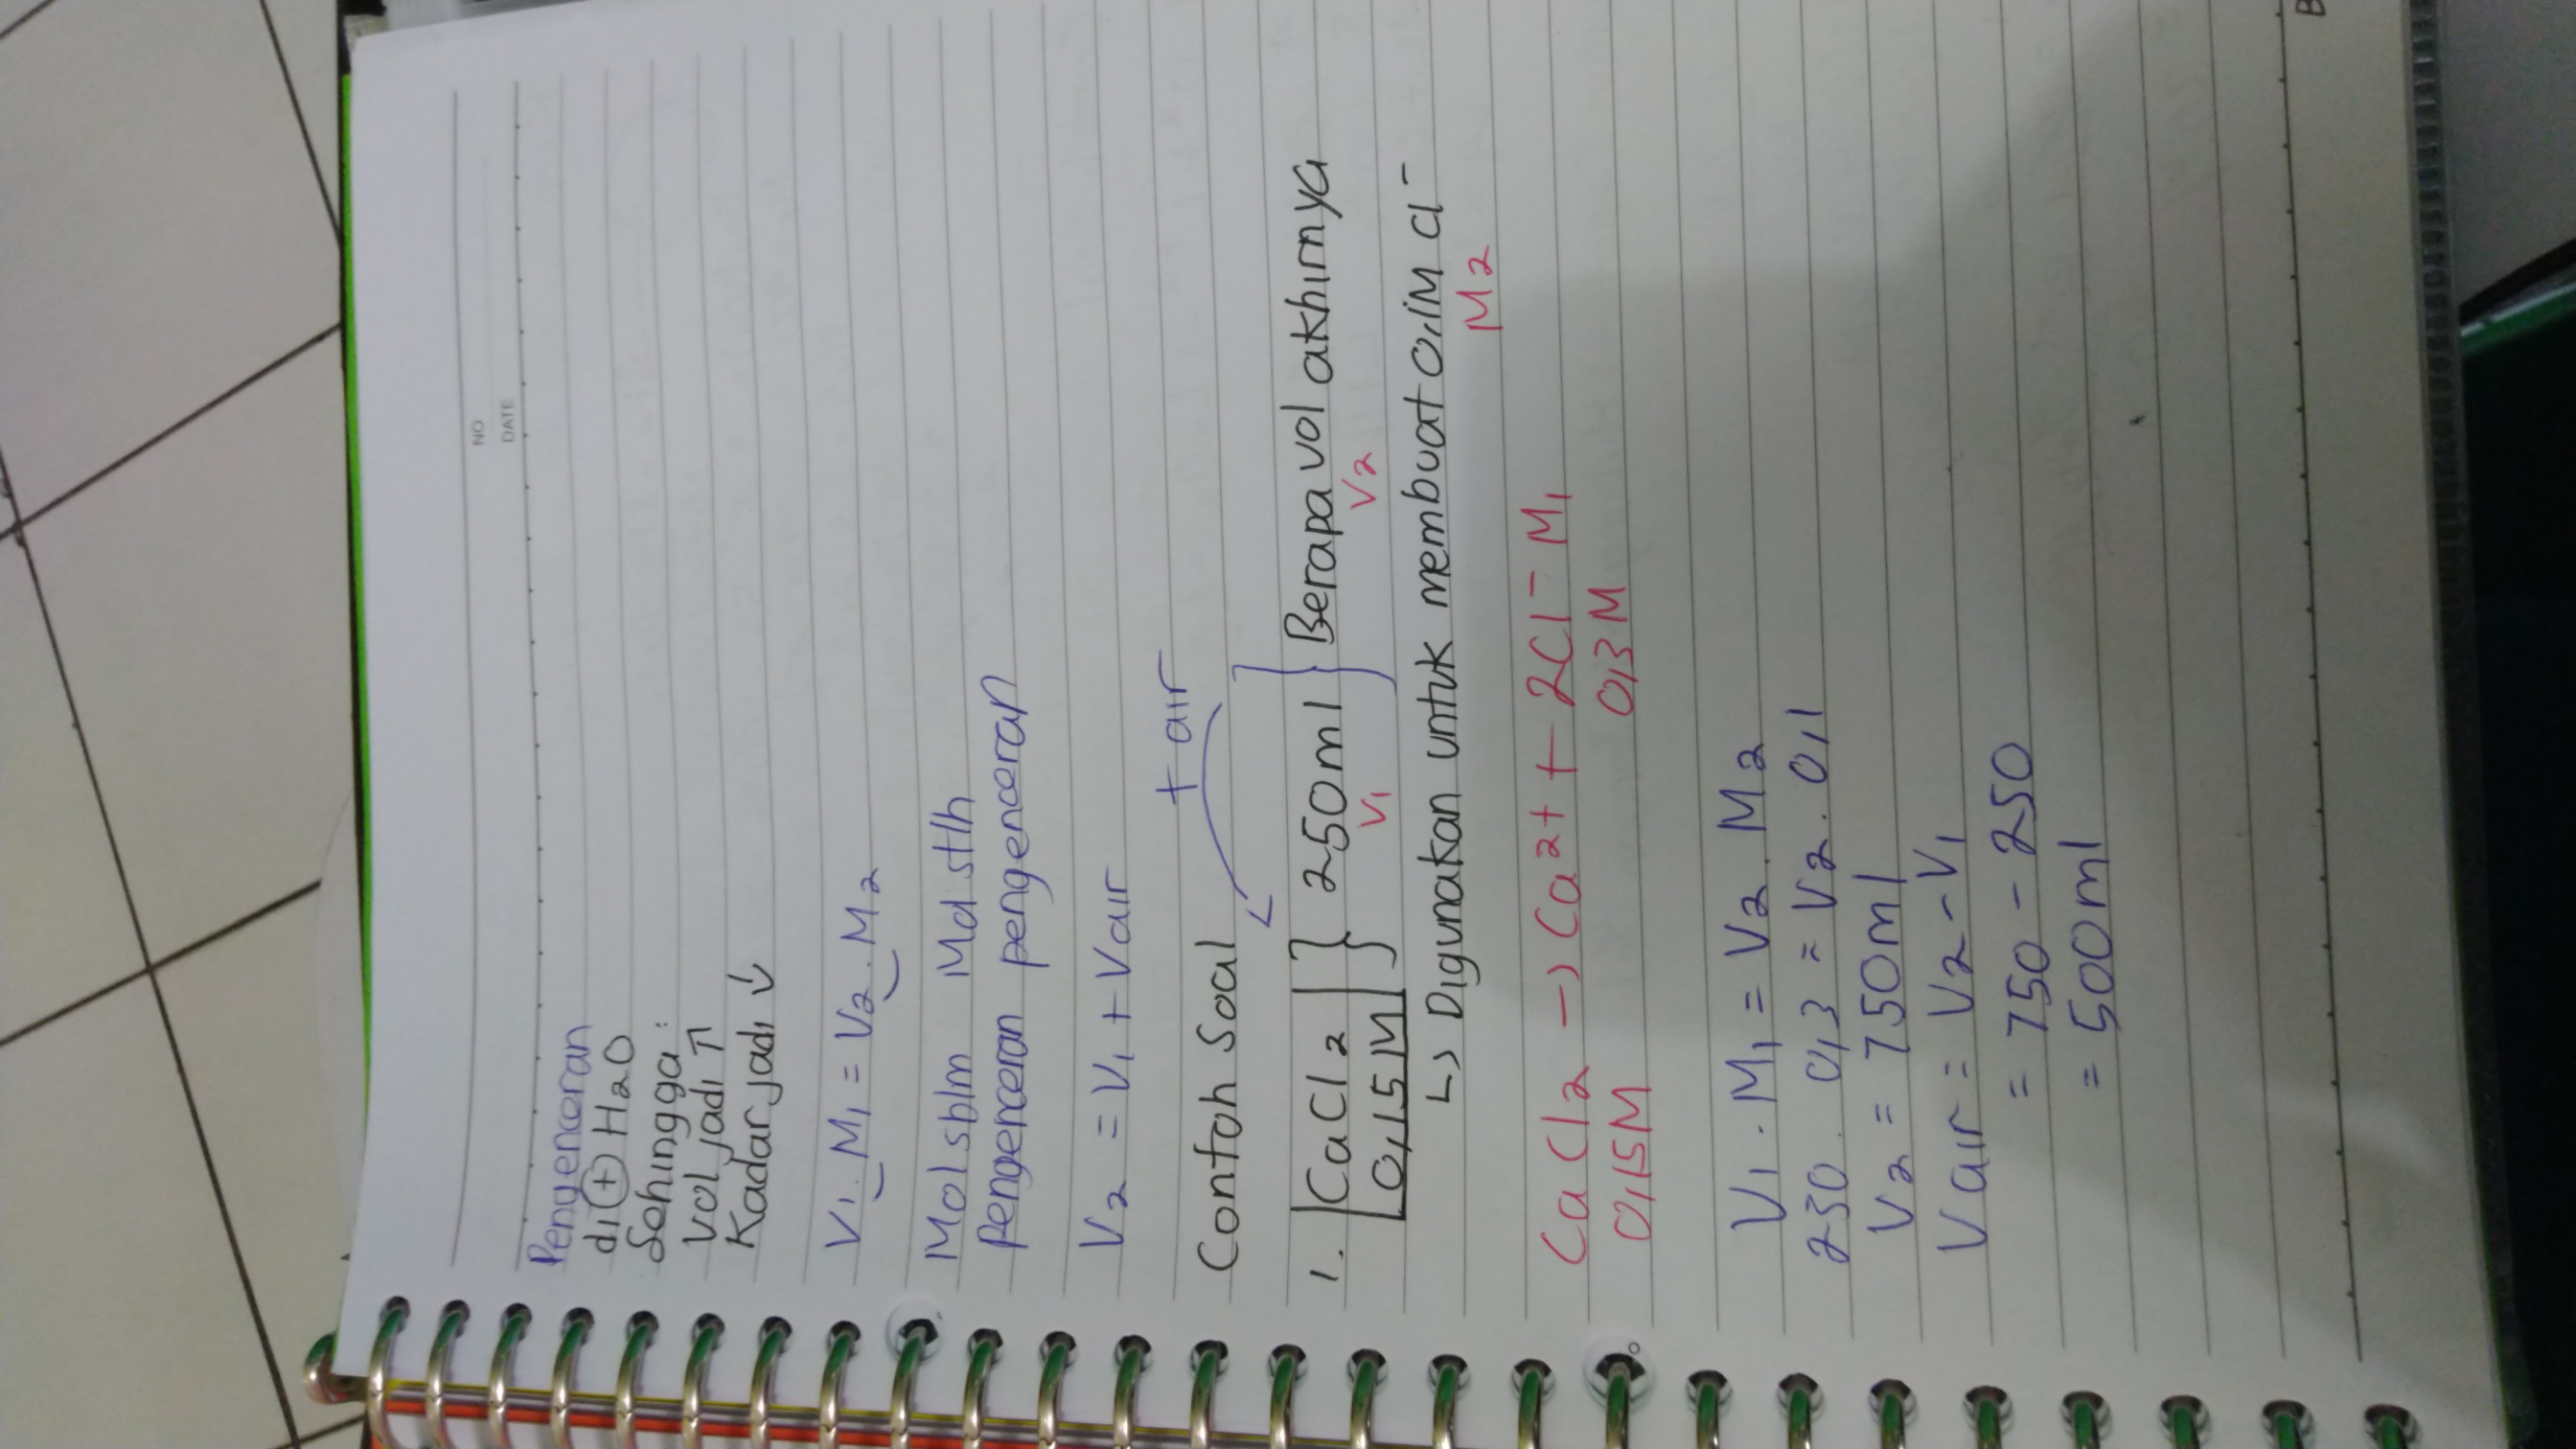 NO
DATE
Pengenceran
di ⊕ H2O
Sehingga :
Vol jadi ↑
Kadar jadi ↓
V1 . M1 = V2 . M2
Mol sblm Mol stlh
Pengenceran pengenceran
V2 = V1 + Vair
+ air
Contoh Soal
1. CaCl2 } 250ml } Berapa vol akhirnya
0,15M V1 V2
↳ Digunakan untuk membuat 0,1M Cl-
M2
CaCl2 → Ca2+ + 2Cl- M1
0,15M 0,3M
V1 . M1 = V2 . M2
250 . 0,3 = V2 . 0,1
V2 = 750ml
Vair = V2 - V1
= 750 - 250
= 500ml
B